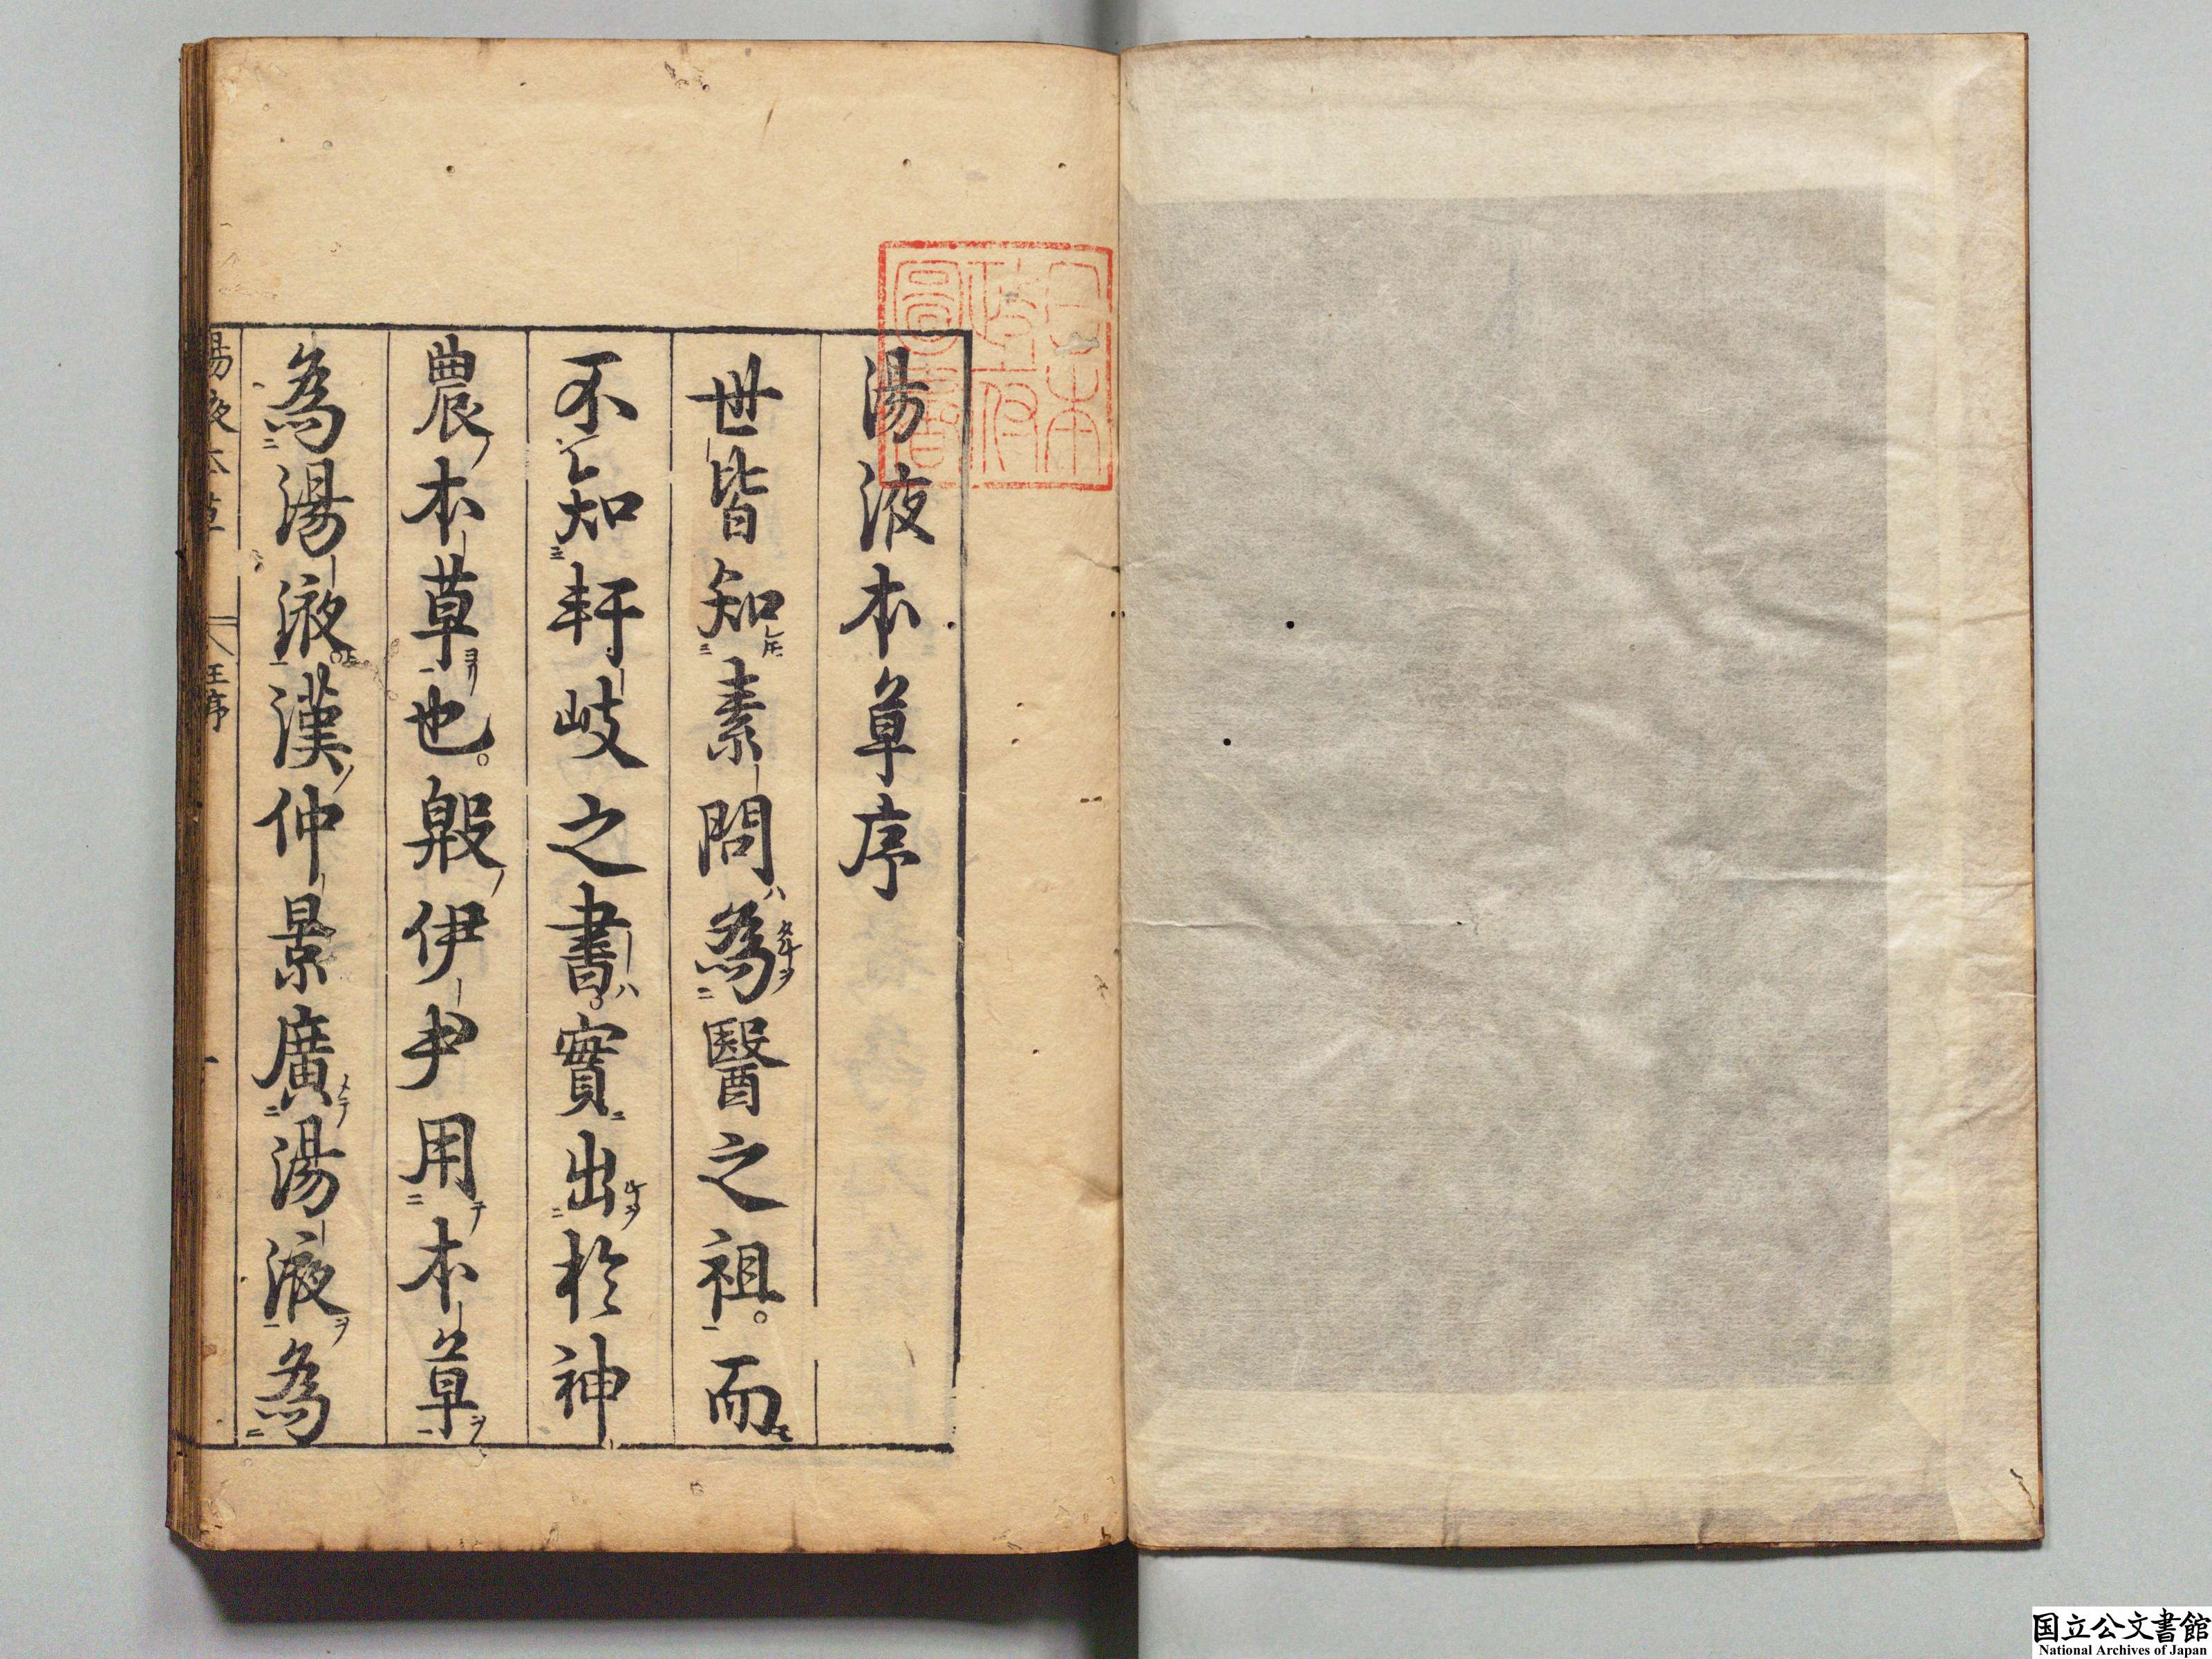 日本
政府
圖書
湯液本草序
世皆知素問為醫之祖。而
不知軒岐之書。實出於神
農本草也。殷伊尹用本草
為湯液。漢仲景廣湯液為
湯液本草 王序 一
国立公文書館
National Archives of Japan